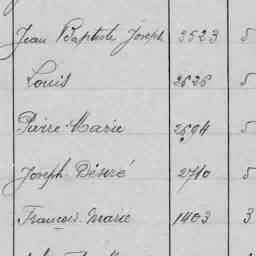 Jean Baptiste Joseph 3523 5
Louis 2626 5
Pierre-Marie 2694 5
Joseph Désiré 2710 5
François Marie 1403 3